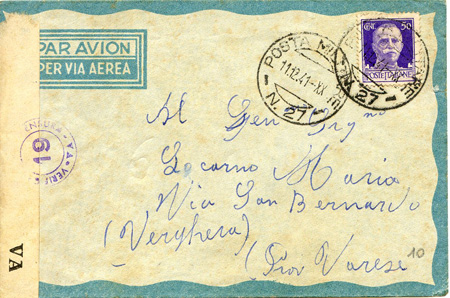 PAR AVION
PER VIA AEREA
CENT. 50
POSTE ITALIANE
POSTA MILITARE
11.12.41-XX
N. 27
27
CENSURA
19
VERI
VA
Al Gen
Locarno Maria
Via San Bernardo
(Verghera)
(Prov Varese
10